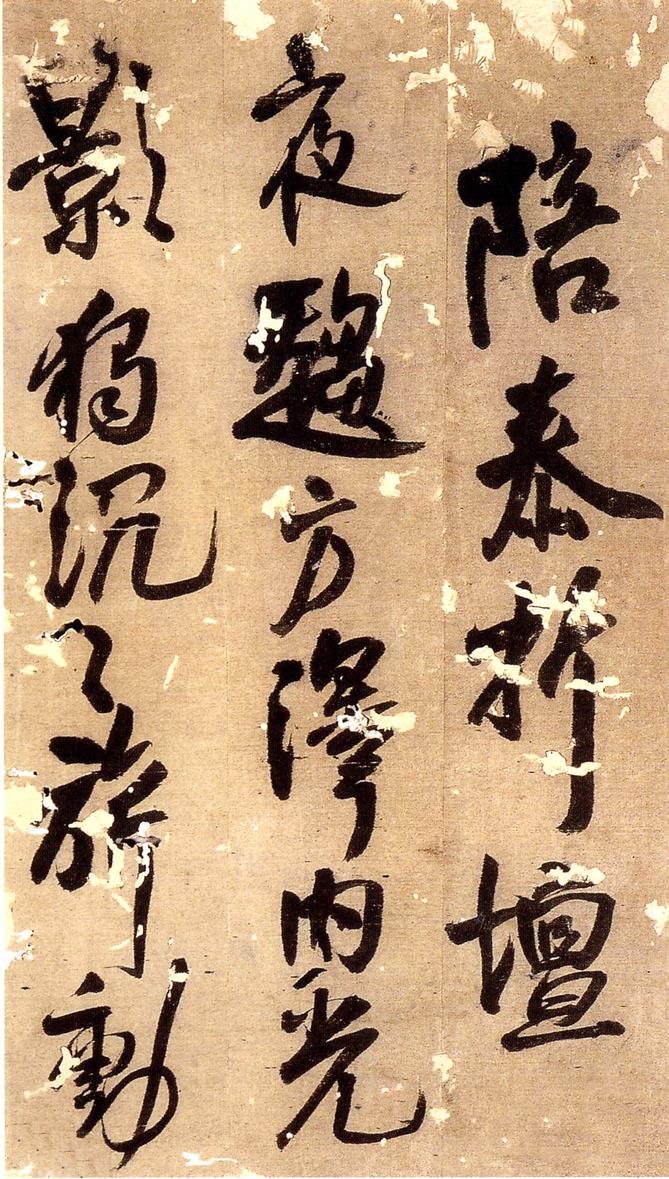 陪泰折壇
夜方澤內光
影獨沉々動